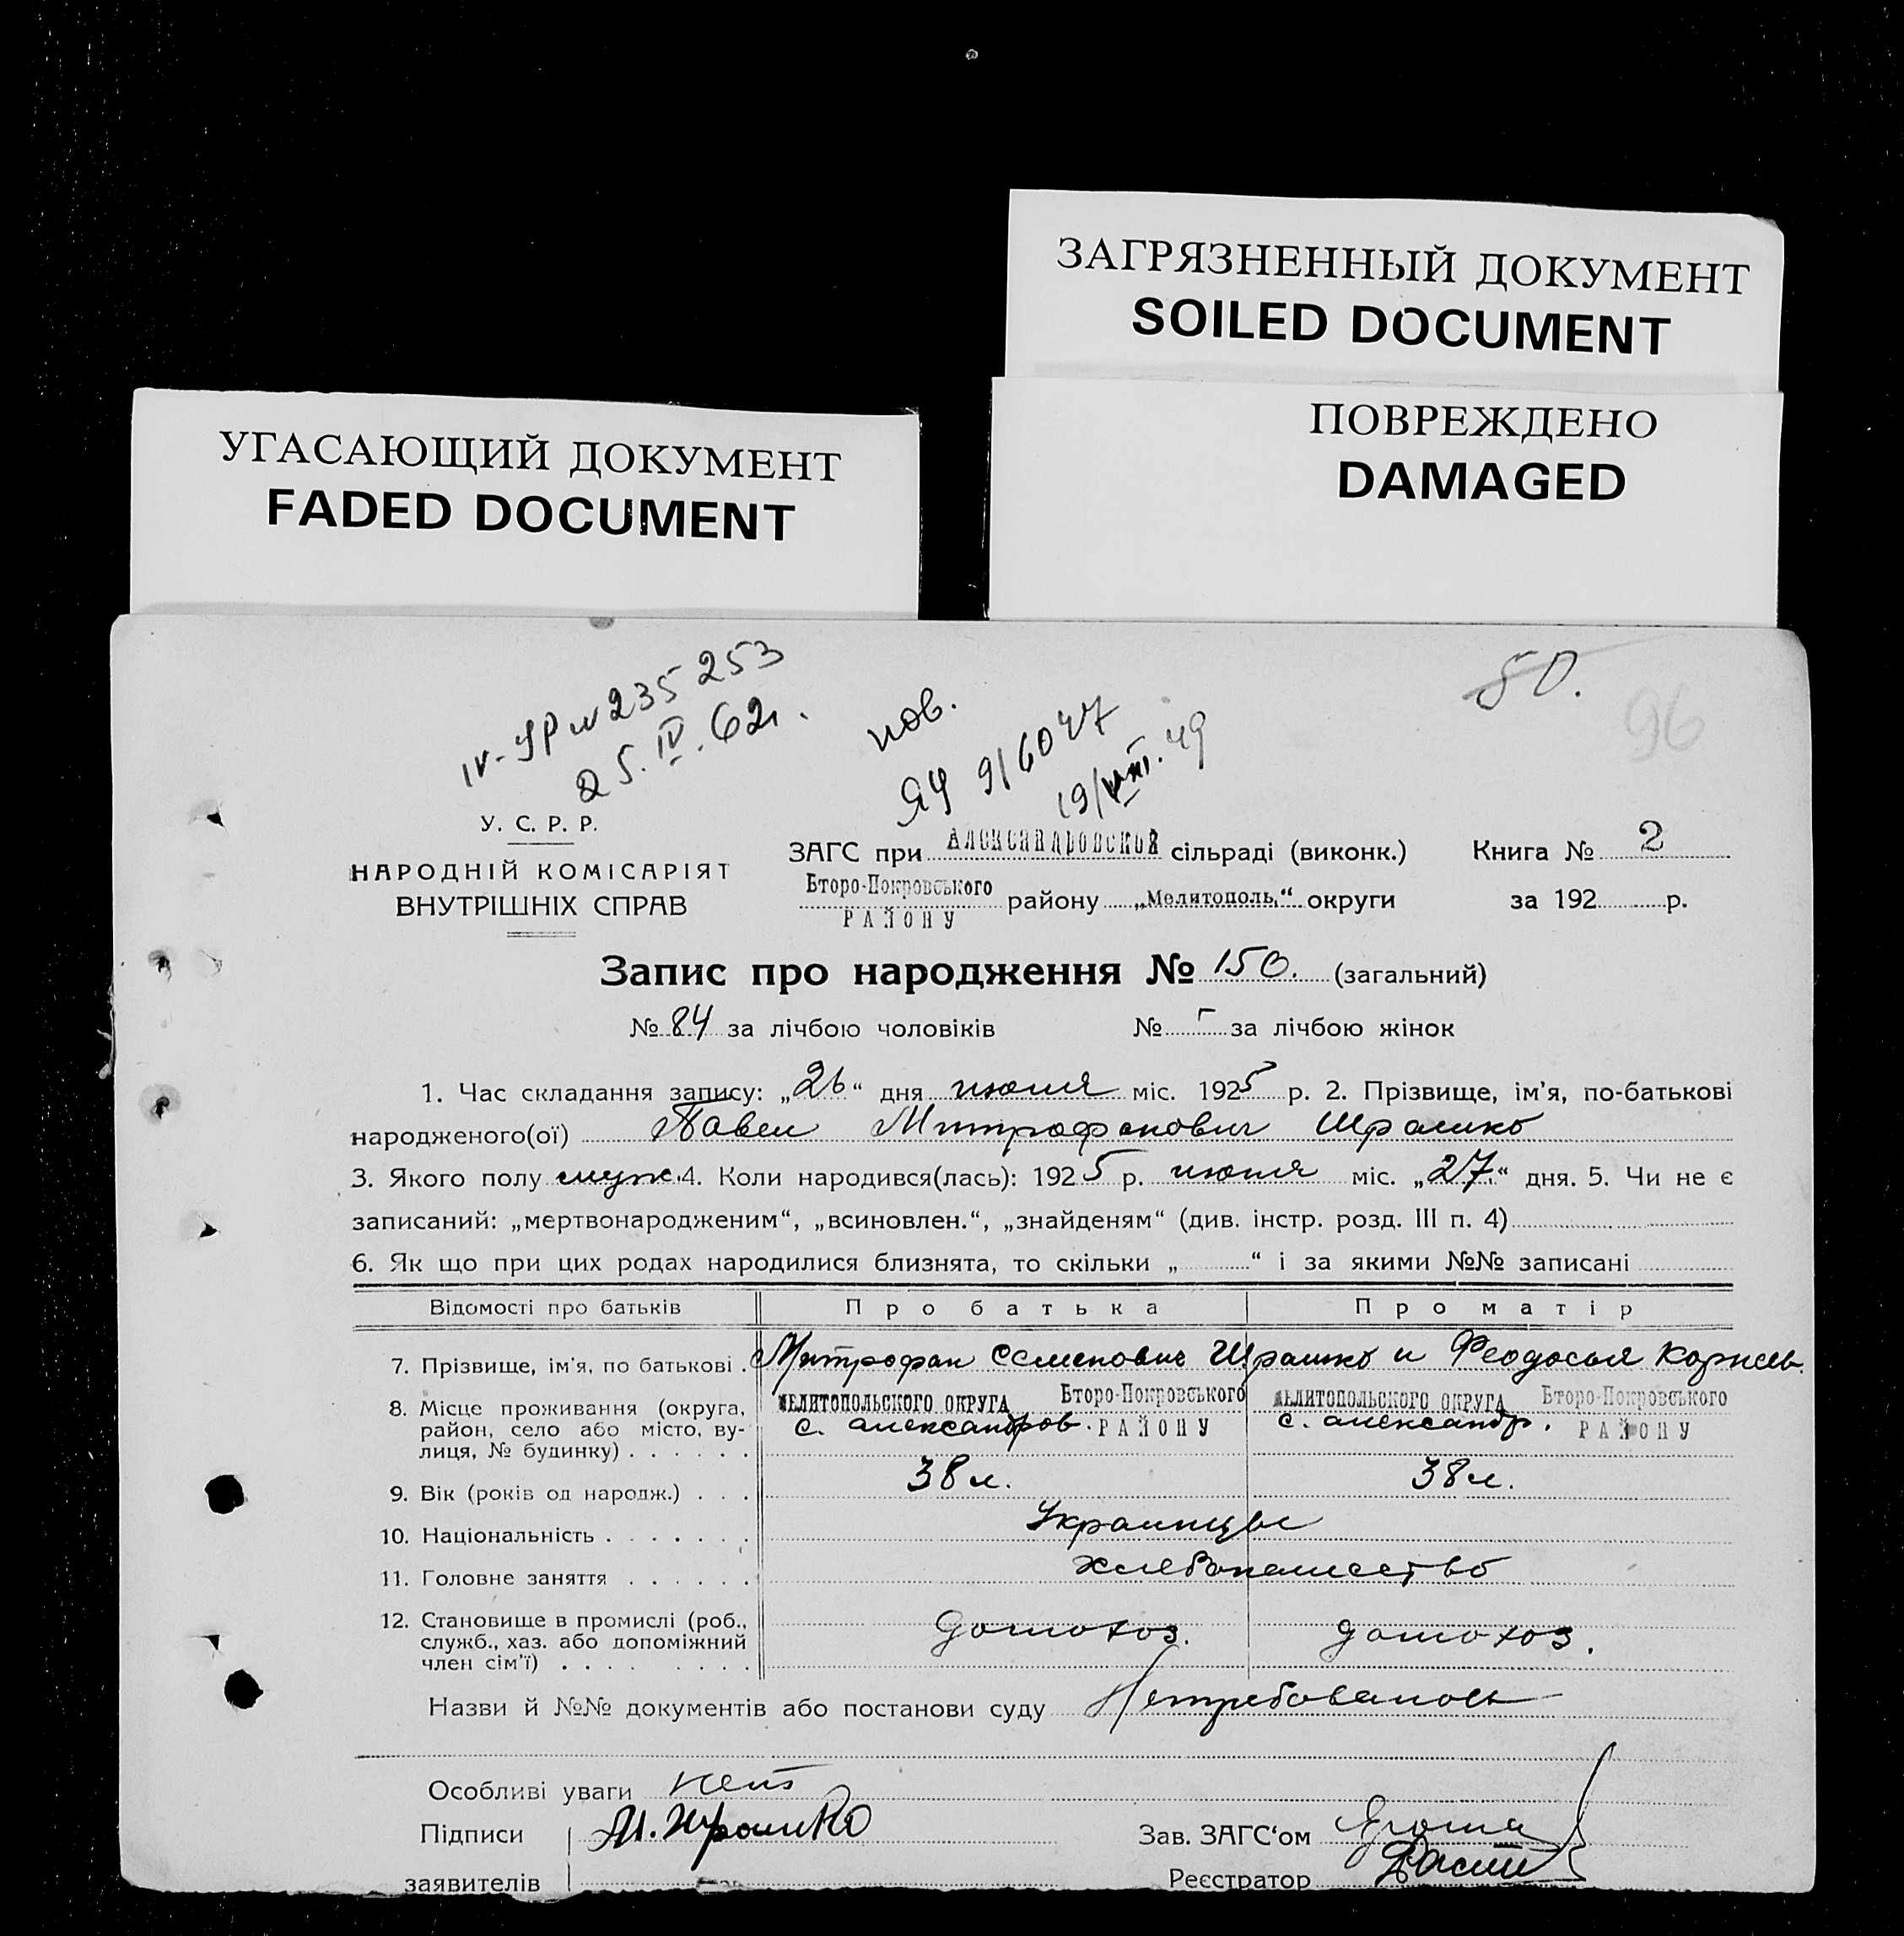 ЗАГРЯЗНЕННЫЙ ДОКУМЕНТ
SOILED DOCUMENT
ПОВРЕЖДЕНО
DAMAGED
УГАСАЮЩИЙ ДОКУМЕНТ
FADED DOCUMENT
50.
96
IV-УР № 235253
25.IV.62г.
пов.
ЯЧ 916047
19/VIII.49
У. С. Р. Р.
НАРОДНІЙ КОМІСАРІЯТ
ВНУТРІШНІХ СПРАВ
ЗАГС при Александровской сільраді (виконк.) Книга № 2
Второ-Покровського РАЙОНУ району „Мелитополь“ округи за 192 р.
Запис про народження № 150. (загальний)
№ 84 за лічбою чоловіків № за лічбою жінок
1. Час складання запису: „26“ дня июля міс. 1925 р. 2. Прізвище, ім'я, по-батькові
народженого(ої) Павел Митрофанович Ирашко
3. Якого полу муж. 4. Коли народився(лась): 1925 р. июня міс. „27.“ дня. 5. Чи не є
записаний: „мертвонародженим“, „всиновлен.“, „знайденям“ (див. інстр. розд. III п. 4)
6. Як що при цих родах народилися близнята, то скільки „ “ і за якими №№ записані
Відомості про батьків Про батька Про матір
7. Прізвище, ім'я, по батькові . Митрофан Семенович Ирашко и Феодосья Корнеев.
8. Місце проживання (округа, район, село або місто, вулиця, № будинку) . . . . . .
МЕЛИТОПОЛЬСКОГО ОКРУГА Второ-Покровського РАЙОНУ с. Александров.
МЕЛИТОПОЛЬСКОГО ОКРУГА Второ-Покровського РАЙОНУ с. Александр.
9. Вік (років од народж.) . . . 38 л. 38 л.
10. Національність . . . . . . . Украинцы
11. Головне заняття . . . . . . Хлебопашество
12. Становище в промислі (роб., служб., хаз. або допоміжний член сім'ї) . . . . . . . . домохоз. домохоз.
Назви й №№ документів або постанови суду Нетребовалось
Особливі уваги нет
Підписи М. Ирашко Зав. ЗАГС'ом
заявителів Реєстратор